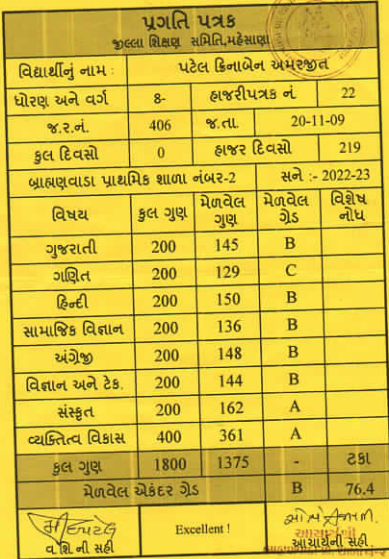 પ્રગતિ પત્રક
જીલ્લા શિક્ષણ સમિતિ,મહેસાણા
વિદ્યાર્થીનું નામ : પટેલ ક્રિનાબેન અમરજીત
ધોરણ અને વર્ગ 8- હાજરીપત્રક નં 22
જ.ર.નં. 406 જ.તા. 20-11-09
કુલ દિવસો 0 હાજર દિવસો 219
બ્રાહ્મણવાડા પ્રાથમિક શાળા નંબર-2 સને :- 2022-23
વિષય કુલ ગુણ મેળવેલ ગુણ મેળવેલ ગ્રેડ વિશેષ નોંધ
ગુજરાતી 200 145 B
ગણિત 200 129 C
હિન્દી 200 150 B
સામાજિક વિજ્ઞાન 200 136 B
અંગ્રેજી 200 148 B
વિજ્ઞાન અને ટેક. 200 144 B
સંસ્કૃત 200 162 A
વ્યક્તિત્વ વિકાસ 400 361 A
કુલ ગુણ 1800 1375 - ટકા
મેળવેલ એકંદર ગ્રેડ B 76.4
Excellent !
વ.શિ.ની સહી આચાર્યની સહી